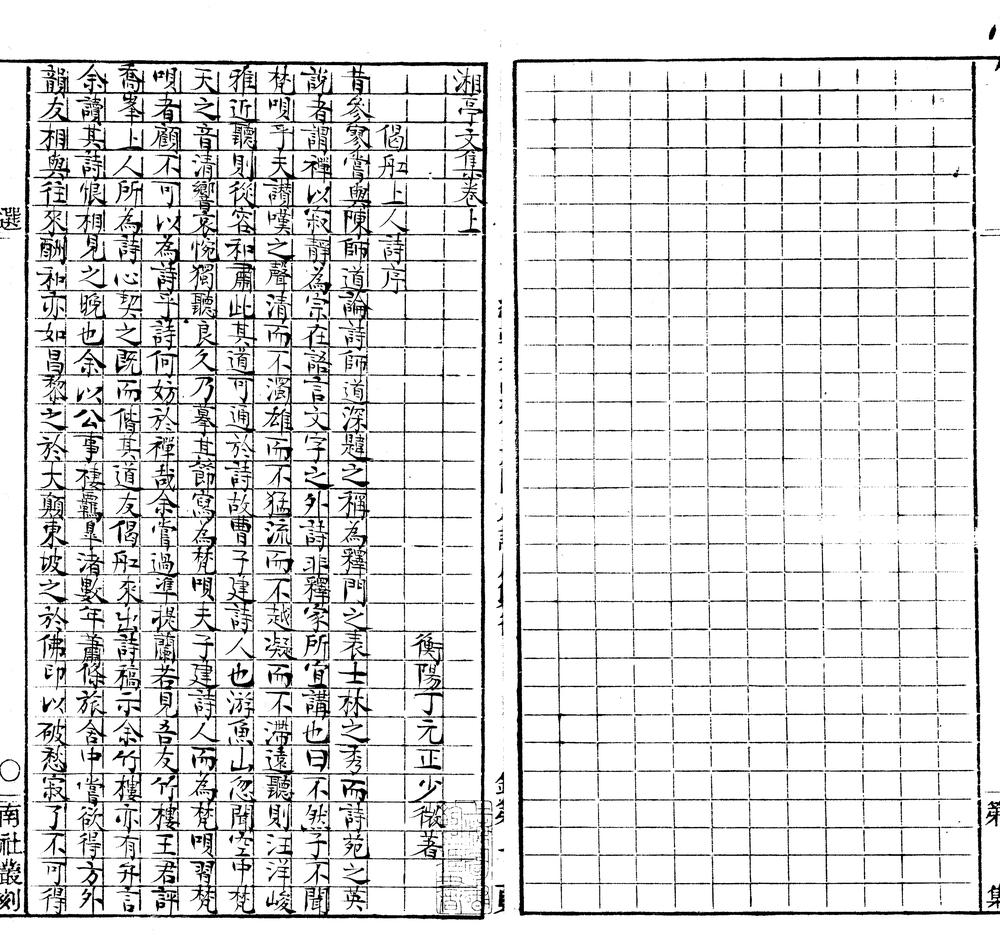 湘亭文集卷上
衡陽丁元正少微著
偈舡上人詩序
昔參寥嘗與陳師道論詩師道深韙之稱為釋門之表士林之秀而詩苑之英
說者謂禪以寂靜為宗在語言文字之外詩非釋家所宜講也曰不然子不聞
梵唄乎夫讚嘆之聲清而不濁雄而不猛流而不越凝而不滯遠聽則汪洋峻
雅近聽則從容和肅此其道可通於詩故曹子建詩人也游魚山忽聞空中梵
天之音清響哀惋獨聽良久乃摹其節寫為梵唄夫子建詩人而為梵唄習梵
唄者顧不可以為詩乎詩何妨於禪哉余嘗過準提蘭若見吾友竹樓王君評
喬峯上人所為詩心契之既而偕其道友偈舡來出詩稿示余竹樓亦有弁言
余讀其詩恨相見之晚也余以公事棲羈臯渚數年蕭條旅舍中嘗欲得方外
韻友相與往來酬和亦如昌黎之於大顛東坡之於佛印以破愁寂了不可得
選
〇
南社叢刻
第
集